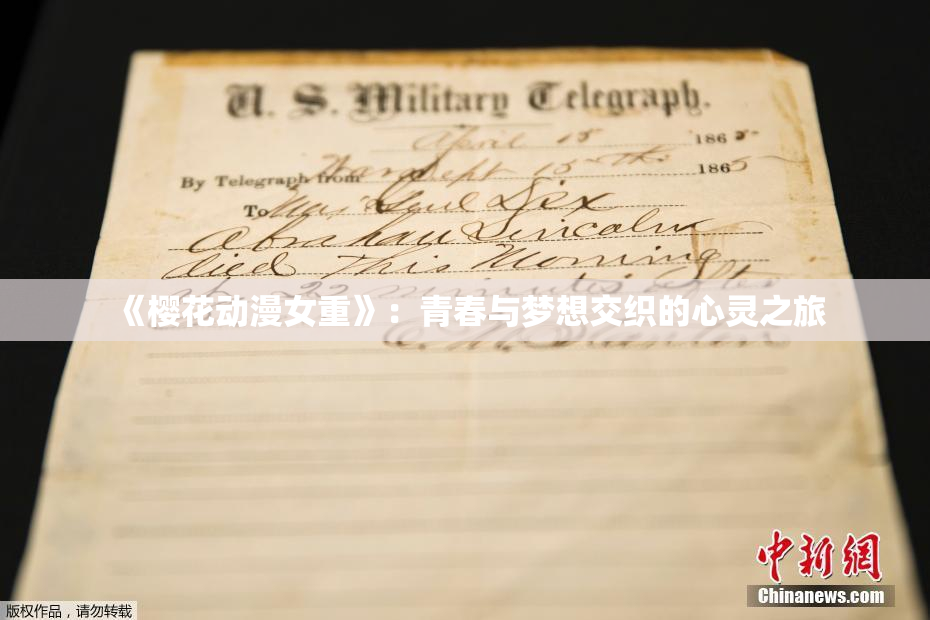 U. S. Military Telegraph.
April 15 1865
By Telegraph from War Dept 15th 1865
To Maj Genl Dix
Abraham Lincoln
died This Morning
22 minutes after
《樱花动漫女重》：青春与梦想交织的心灵之旅
中新网
Chinanews.com
版权作品，请勿转载